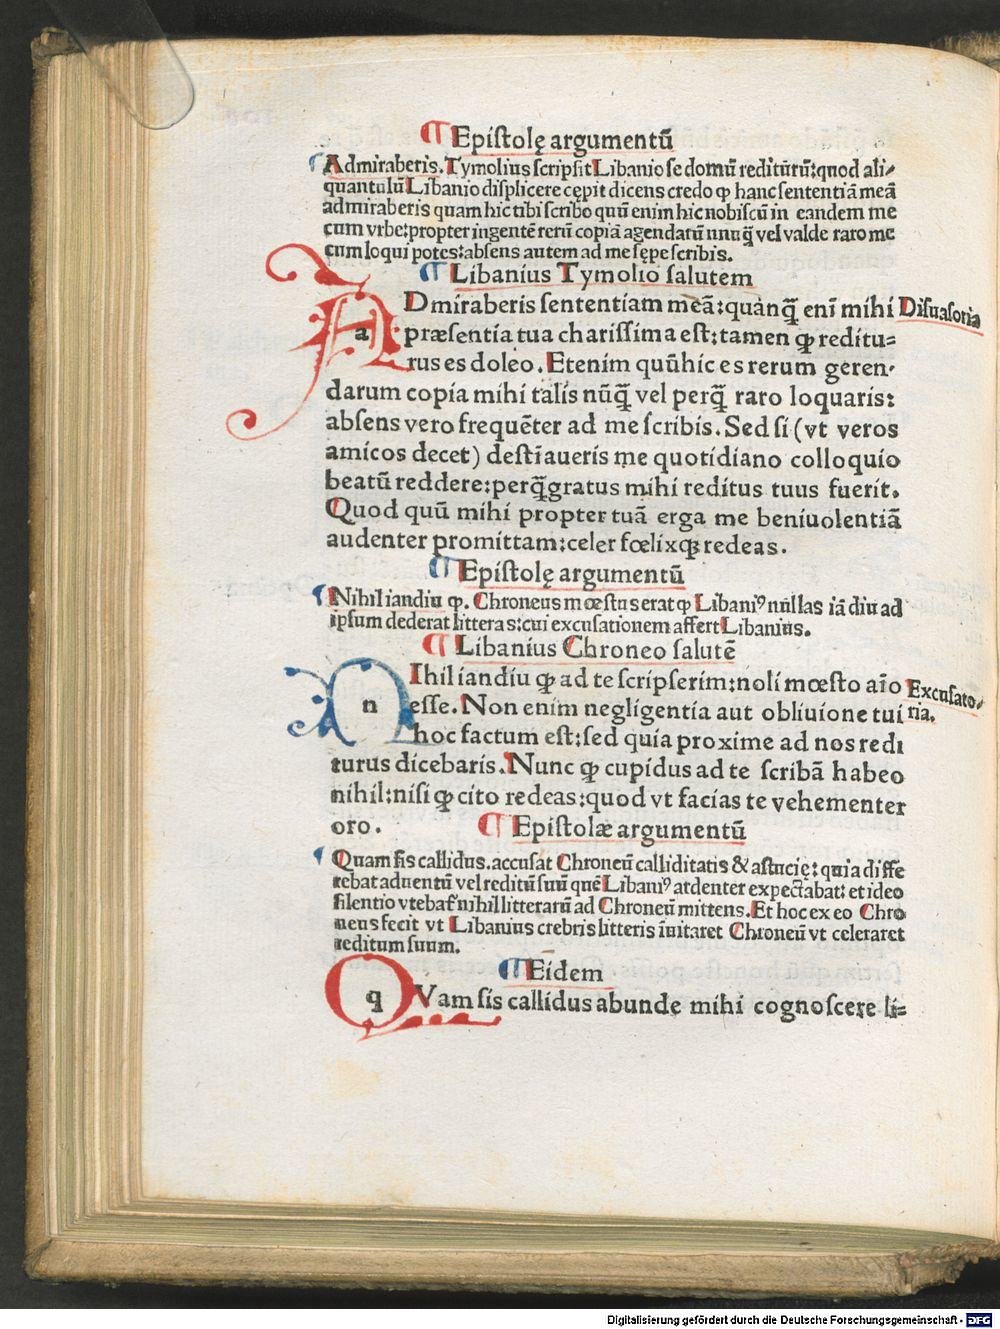 ¶ Epistolę argumentū
Admiraberis. Tymolius scripsit Libanio se domū reditūrū: quod ali⸗
quantulū Libanio displicere cępit dicens credo ꝙ hanc sententiā meā
admiraberis quam hic tibi scribo quū enim hic nobiscū in eandem me
cum vrbe: propter ingentē rerū copiā agendarū nunq̄ vel valde raro me
cum loqui potes: absens autem ad me sępe scribis.
¶ Libanius Tymolio salutem
aDmiraberis sententiam meā: quanq̄ enī mihi Disuasoria
præsentia tua charissima est: tamen ꝙ reditu⸗
rus es doleo. Etenim quū hic es rerum geren⸗
darum copia mihi talis nūq̄ vel perq̄ raro loquaris:
absens vero frequēter ad me scribis. Sed si (vt veros
amicos decet) destīaueris me quotidiano colloquio
beatū reddere: perq̄gratus mihi reditus tuus fuerit.
Quod quū mihi propter tuā erga me beniuolentiā
audenter promittam: celer fœlixqꝫ redeas.
¶ Epistolę argumentū
Nihil iandiu ꝙ. Chroneus mœstus erat ꝙ Libaniꝰ nullas iā diu ad
ipsum dederat litteras: cui excusationem affert Libanius.
¶ Libanius Chroneo salutē
nIhil iandiu ꝙ ad te scripserim: noli mœsto aīo Excusato⸗
esse. Non enim negligentia aut obliuione tui ria.
hoc factum est: sed quia proxime ad nos redi
turus dicebaris. Nunc ꝙ cupidus ad te scribā habeo
nihil: nisi ꝙ cito redeas: quod vt facias te vehementer
oro. ¶ Epistolæ argumentū
Quam sis callidus. accusat Chroneū calliditatis & astucię: quia diffe
rebat aduentū vel reditū suū quē Libaniꝰ ardenter expectabat: et ideo
silentio vtebaf nihil litterarū ad Chroneū mittens. Et hoc ex eo Chro
neus fecit vt Libanius crebris litteris īuitaret Chroneū vt celeraret
reditum suum.
¶ Eidem
qVam sis callidus abunde mihi cognoscere li⸗
Digitalisierung gefördert durch die Deutsche Forschungsgemeinschaft - DFG